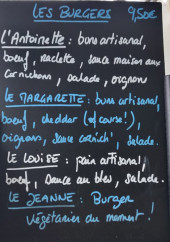 LES BURGERS 9,50€
L'Antoinette : buns artisanal,
boeuf, raclette, sauce maison aux
cornichons, salade, oignon
LE MARGARETTE : buns artisanal,
boeuf, cheddar (of course!),
oignons, sauce cornich', salade.
LE LOUISE : pain artisanal,
boeuf, sauce au bleu, salade.
LE JEANNE : Burger
végétarien du moment !